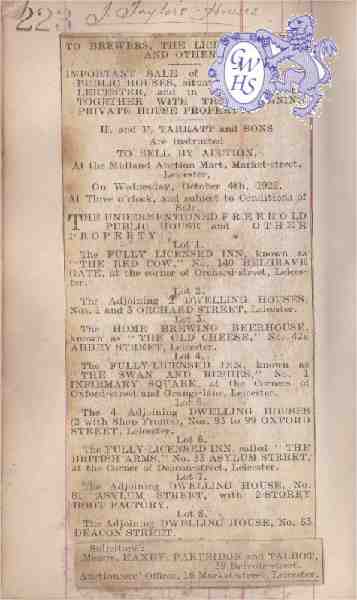 22
J. Taylors Houses
TO BREWERS, THE LIC
AND OTHER
IMPORTANT SALE of
PUBLIC HOUSES, situate
LEICESTER, and in
TOGETHER WITH THE
PRIVATE HOUSE PROPERTY
GWHS
H. and F. TARRATT and SONS
Are instructed
TO SELL BY AUCTION,
At the Midland Auction Mart, Market-street,
Leicester,
On Wednesday, October 4th, 1922,
At Three o'clock, and subject to Conditions of
Sale,
THE UNDERMENTIONED FREEHOLD
PUBLIC HOUSE and OTHER
PROPERTY
Lot 1.
The FULLY LICENSED INN, known as
"THE RED COW," No. 140 BELGRAVE
GATE, at the corner of Orchard-street, Leices-
ter.
Lot 2.
The Adjoining 2 DWELLING HOUSES,
Nos. 1 and 3 ORCHARD STREET, Leicester.
Lot 3.
The HOME BREWING BEERHOUSE,
known as "THE OLD CHEESE," No. 42a
ABBEY STREET, Leicester.
Lot 4.
The FULLY-LICENSED INN, known as
THE SWAN AND RUSHES," No. 1
INFIRMARY SQUARE, at the Corners of
Oxford-street and Grange-lane, Leicester.
Lot 5.
The 4 Adjoining DWELLING HOUSES
(2 with Shop Fronts), Nos. 93 to 99 OXFORD
STREET, Leicester.
Lot 6.
The FULLY-LICENSED INN, called "THE
BRITISH ARMS," No. 33 ASYLUM STREET,
at the Corner of Deacon-street, Leicester.
Lot 7.
The Adjoining DWELLING HOUSE, No.
ASYLUM STREET, with 2-STOREY
BOOT FACTORY.
Lot 8.
The Adjoining DWELLING HOUSE, No. 63
DEACON STREET.
Solicitors:
Messrs. HAXBY, PARTRIDGE and TALBOT,
Belvoir-street.
Auctioneers' Offices, 16 Market-street, Leicester.